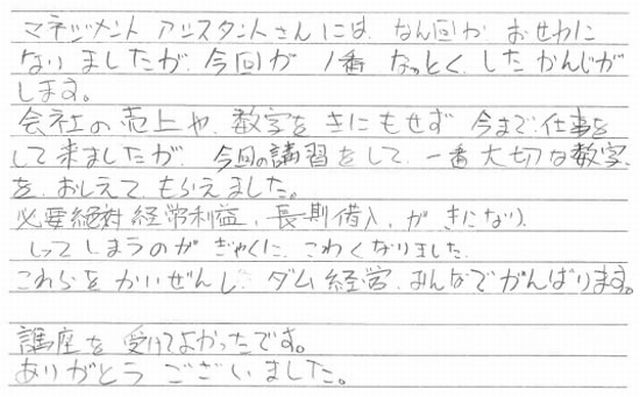 マネジメント アシスタントさんには、なん回か おせわに
なりましたが、今回が 1番 なっとく したかんじが
します。
会社の売上や、数字を きにもせず 今まで、仕事を
して来ましたが、今回の講習をして、一番大切な数字、
を、おしえて、もらえました。
必要絶対経常利益、長期借入、がきになり、
しってしまうのが ぎゃくに、こわくなりました。
これらを かいぜんし、ダム経営、みんなでがんばります。
講座を 受けてよかったです。
ありがとう ございました。